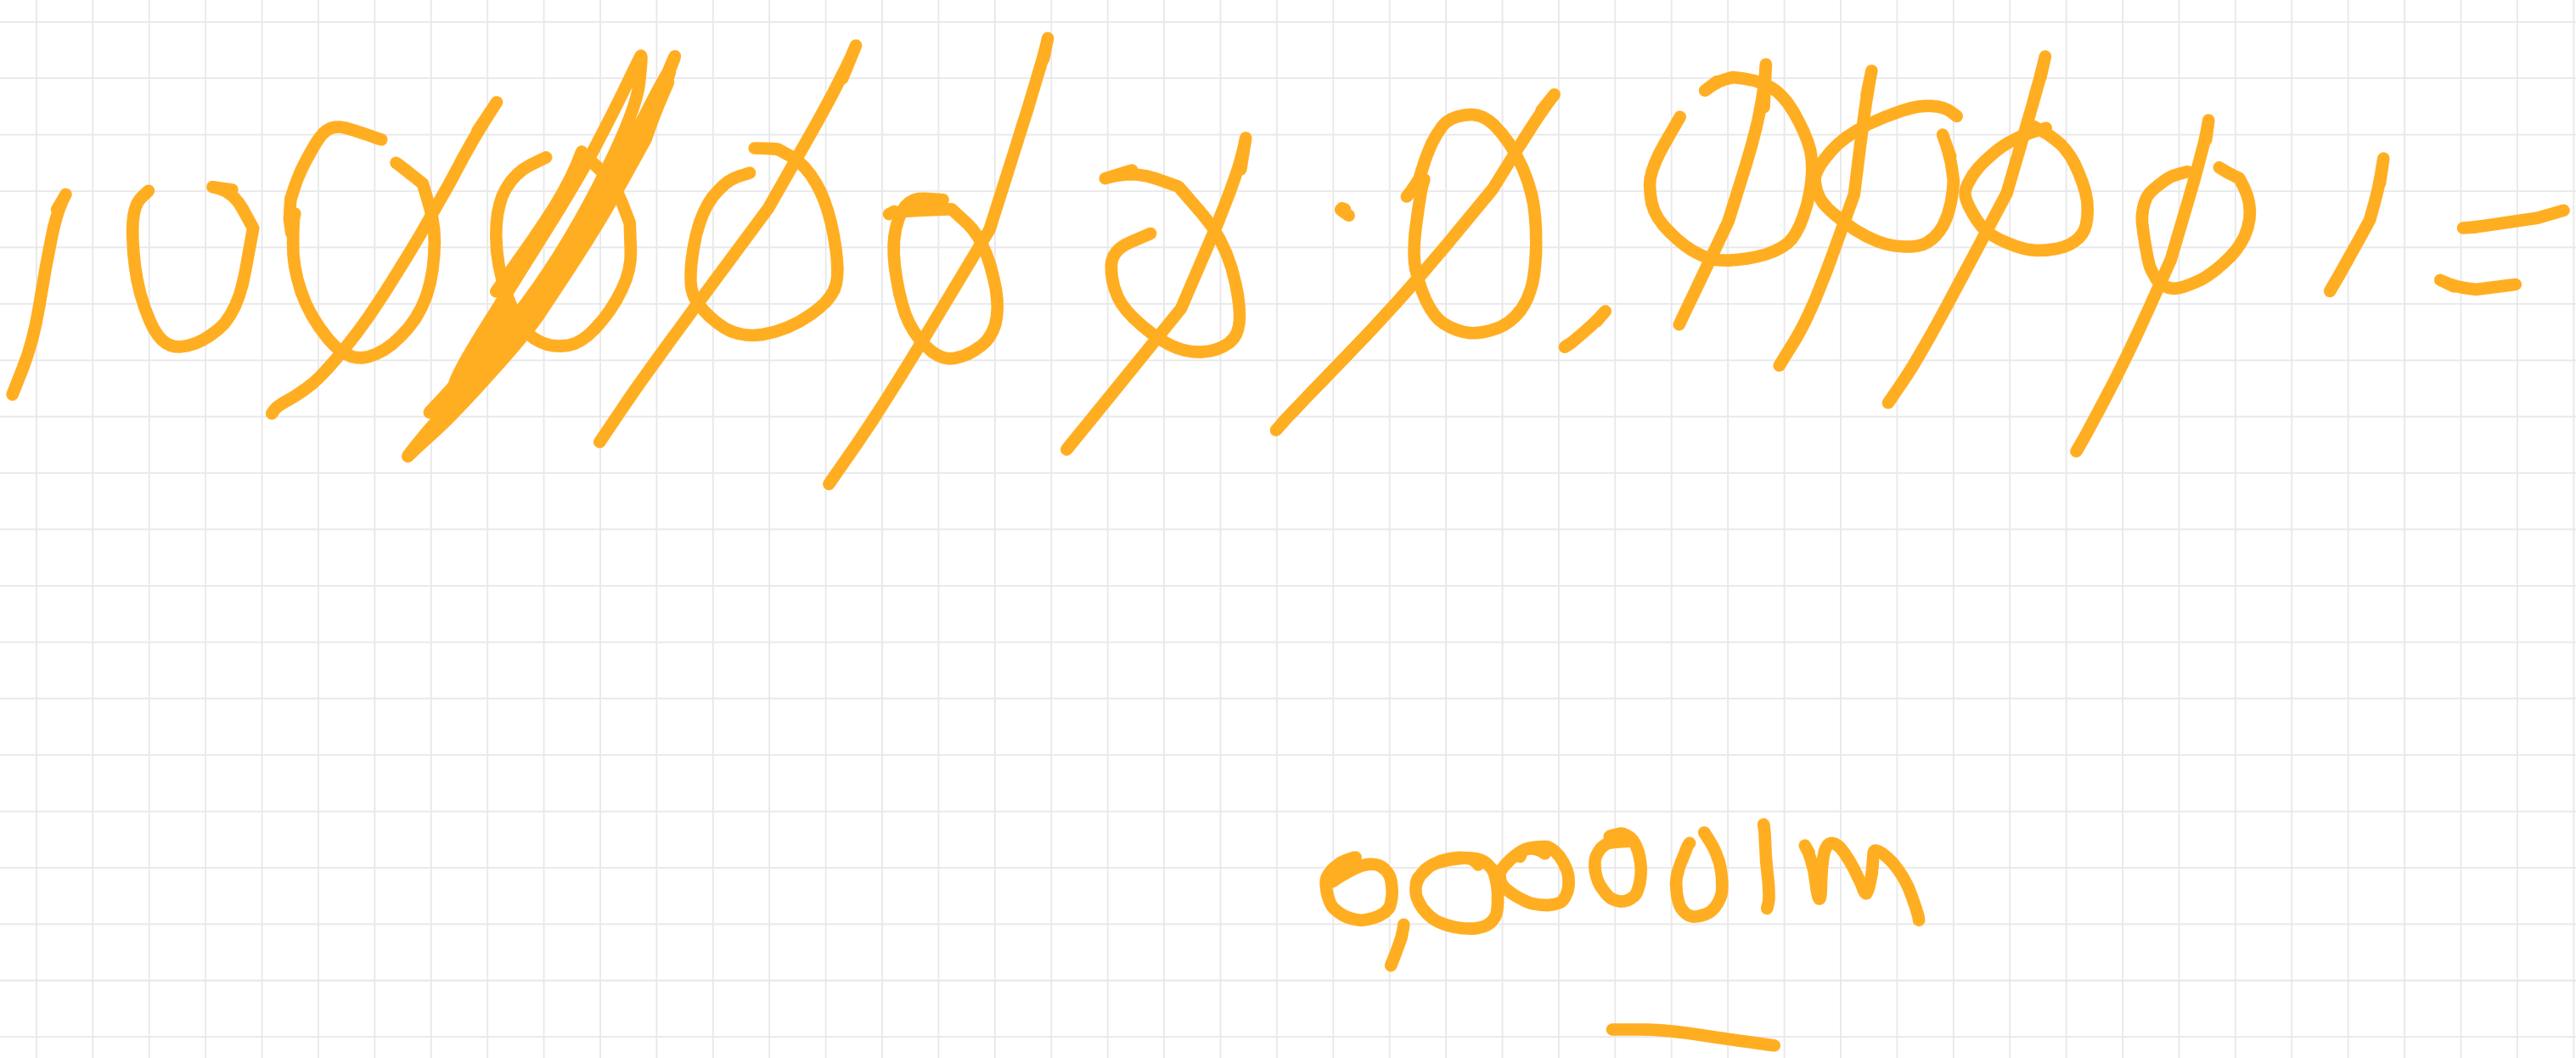 1000000 · 0,00001 =
0,00001m